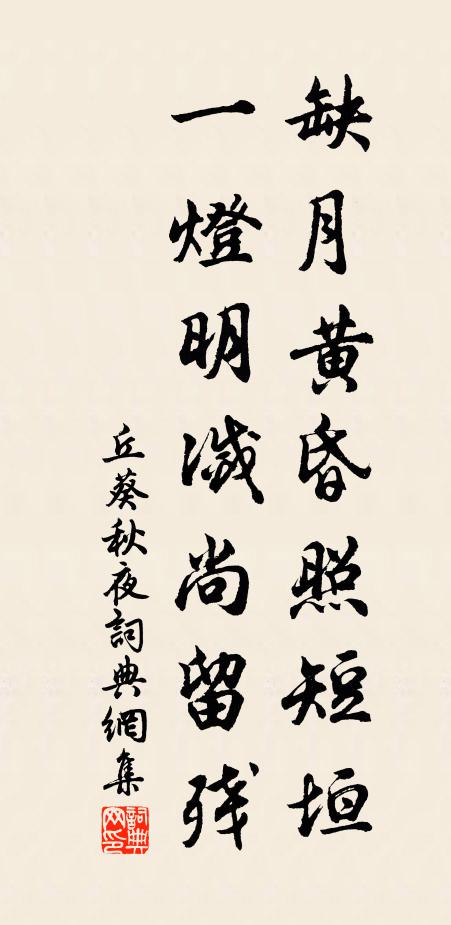 缺月黄昏照短垣
一燈明滅尚留残
丘葵秋夜詞典網集
詞典网印